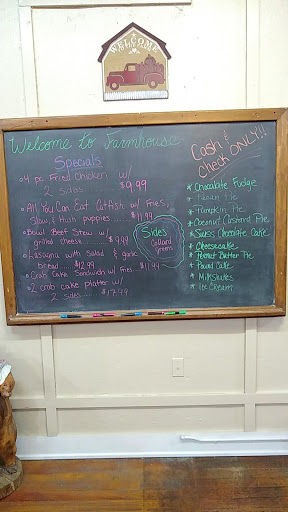 WELCOME
Welcome to Farmhouse
Specials
• 4 pc Fried Chicken w/
2 sides $9.99
• All You Can Eat Catfish w/ Fries,
slaw & Hush puppies $11.99
• Bowl Beef Stew w/
grilled cheese $9.99
• Lasagna with Salad & garlic
bread $12.99
• Crab Cake Sandwich w/ Fries $11.99
• 2 crab cake platter w/
2 sides $17.99
Sides
Collard
Greens
Cash &
Check ONLY!!
* Chocolate Fudge
* Pecan Pie
* Pumpkin Pie
* Coconut Custard Pie
* Swiss Chocolate Cake
* Cheesecake
* Peanut Butter Pie
* Pound Cake
* Milkshakes
* Ice Cream